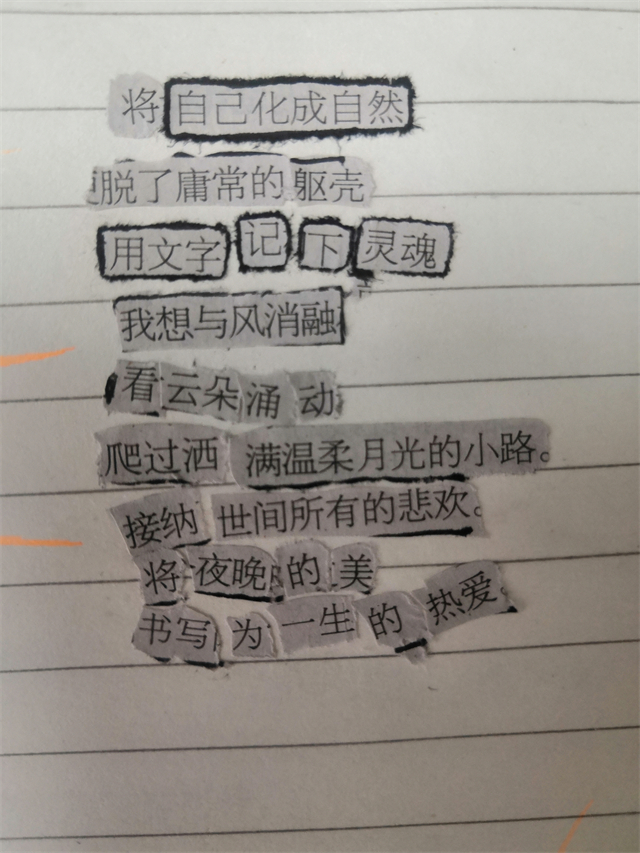 将自己化成自然
脱了庸常的躯壳
用文字记下灵魂
我想与风消融
看云朵涌动
爬过洒满温柔月光的小路。
接纳世间所有的悲欢。
将夜晚的美
书写为一生的热爱。